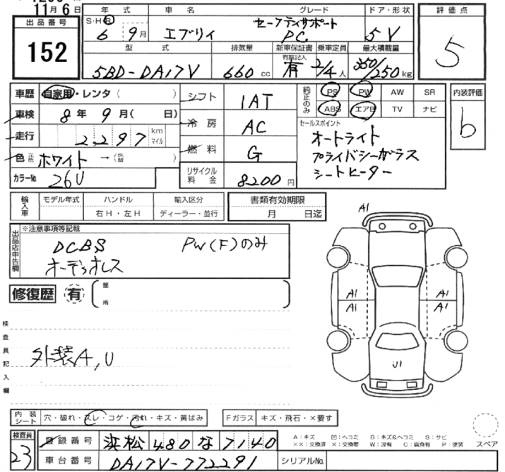 11月6日
出品番号
152
年式 車名 グレード ドア・形状
S・H・R 6年 9月 エブリイ セーフティサポート PC 5V
型式 排気量 新車保証書 乗車定員 最大積載量
5BD-DA17V 660cc 有 2/4人 350/250kg
評価点
5
車歴 自家用・レンタ( )
車検 8年 9月( 日)
走行 2297 km マイル
色 ホワイト →( )
カラーNo 26U
シフト 1AT
冷房 AC
燃料 G
リサイクル料金 8200円
純正のみ PS PW AW SR
ABS エアB TV ナビ
セールスポイント
オートライト
プライバシーガラス
シートヒーター
内装評価
b
輸入車 モデル年式 ハンドル 輸入区分
右H・左H ディーラー・並行
書類有効期限
月 日迄
出品店申告欄 ※注意事項等記載
DCBS PW(F)のみ
オーディオレス
修復歴 有 箇所
検査員記入欄
外装A,U
A1
A1 A1 A1 A1
U1
内装シート 穴・破れ・スレ・コゲ・汚れ・キズ・黄ばみ
Fガラス キズ・飛石・×要す
検査員 23
登録番号 浜松480な7140
車台番号 DA17V-772291
シリアルNo.
A:キズ U:凹ヘコミ B:キズ&ヘコミ S:サビ
スペア